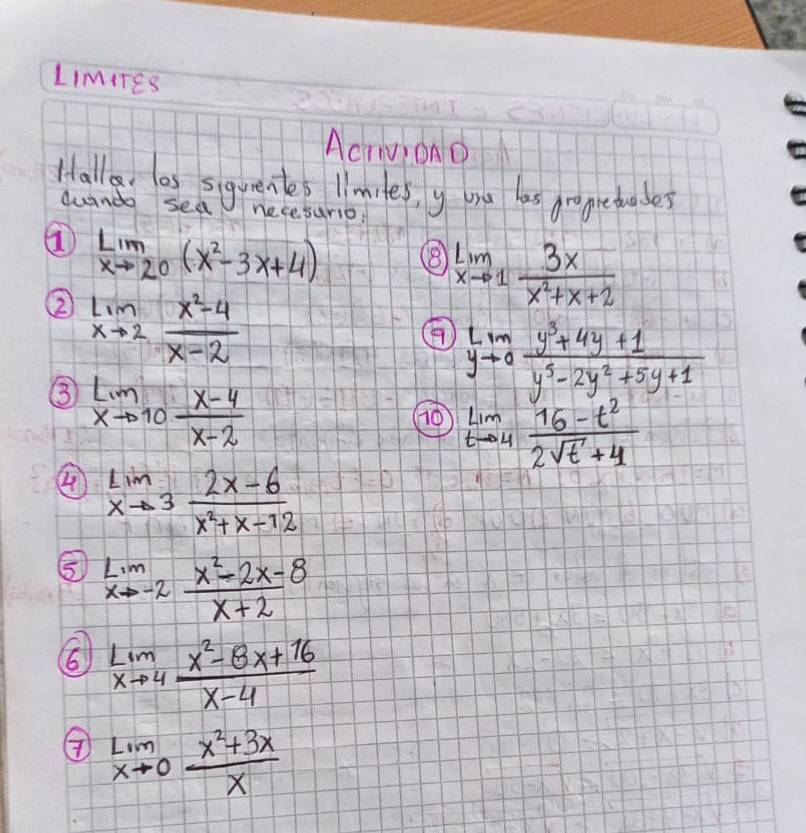 LIMITES
ACTIVIDAD
Hallar los siguientes límites, y use las propiedades
cuando sea necesario:
① Lim x→20 (x²-3x+4)
② Lim x→2 (x²-4)/(x-2)
③ Lim x→10 (x-4)/(x-2)
④ Lim x→3 (2x-6)/(x²+x-12)
⑤ Lim x→-2 (x²-2x-8)/(x+2)
⑥ Lim x→4 (x²-8x+16)/(x-4)
⑦ Lim x→0 (x²+3x)/x
⑧ Lim x→1 3x/(x²+x+2)
⑨ Lim y→0 (y³+4y+1)/(y⁵-2y²+5y+1)
⑩ Lim t→4 (16-t²)/(2√t+4)